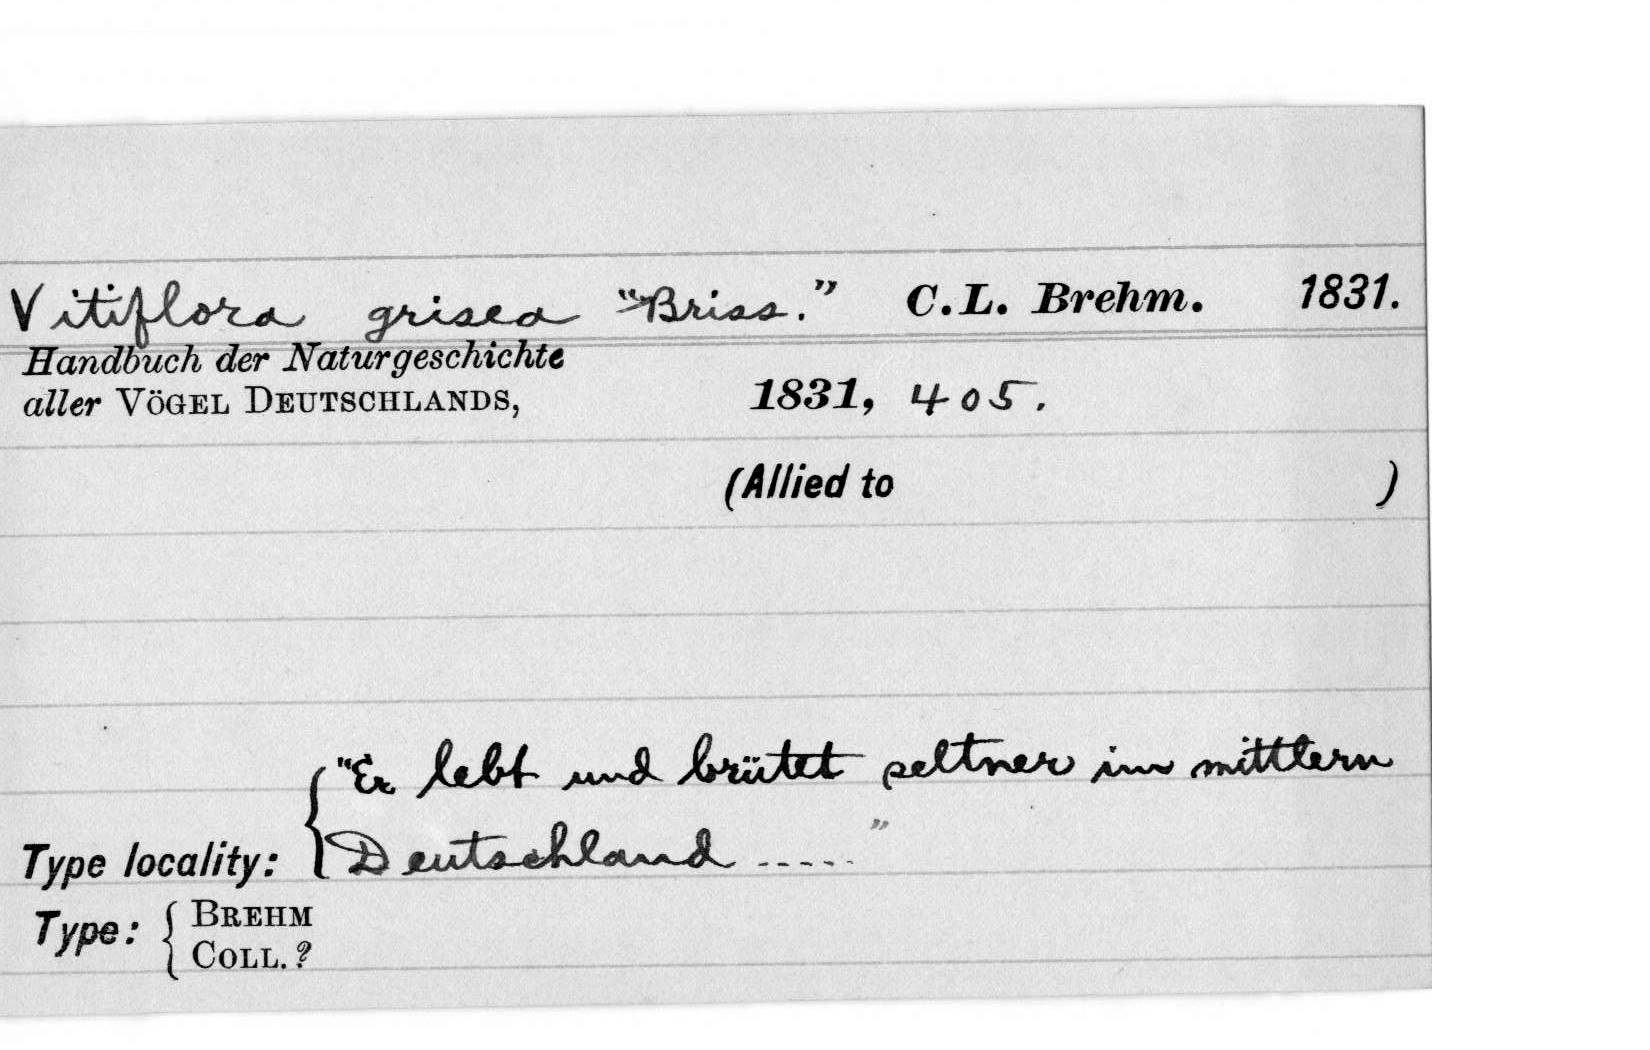 Vitiflora grisea "Briss." C.L. Brehm. 1831.
Handbuch der Naturgeschichte
aller VÖGEL DEUTSCHLANDS, 1831, 405.
(Allied to )
"Er lebt und brütet seltner im mittlern
Type locality: Deutschland ....."
Type: BREHM
COLL. ?